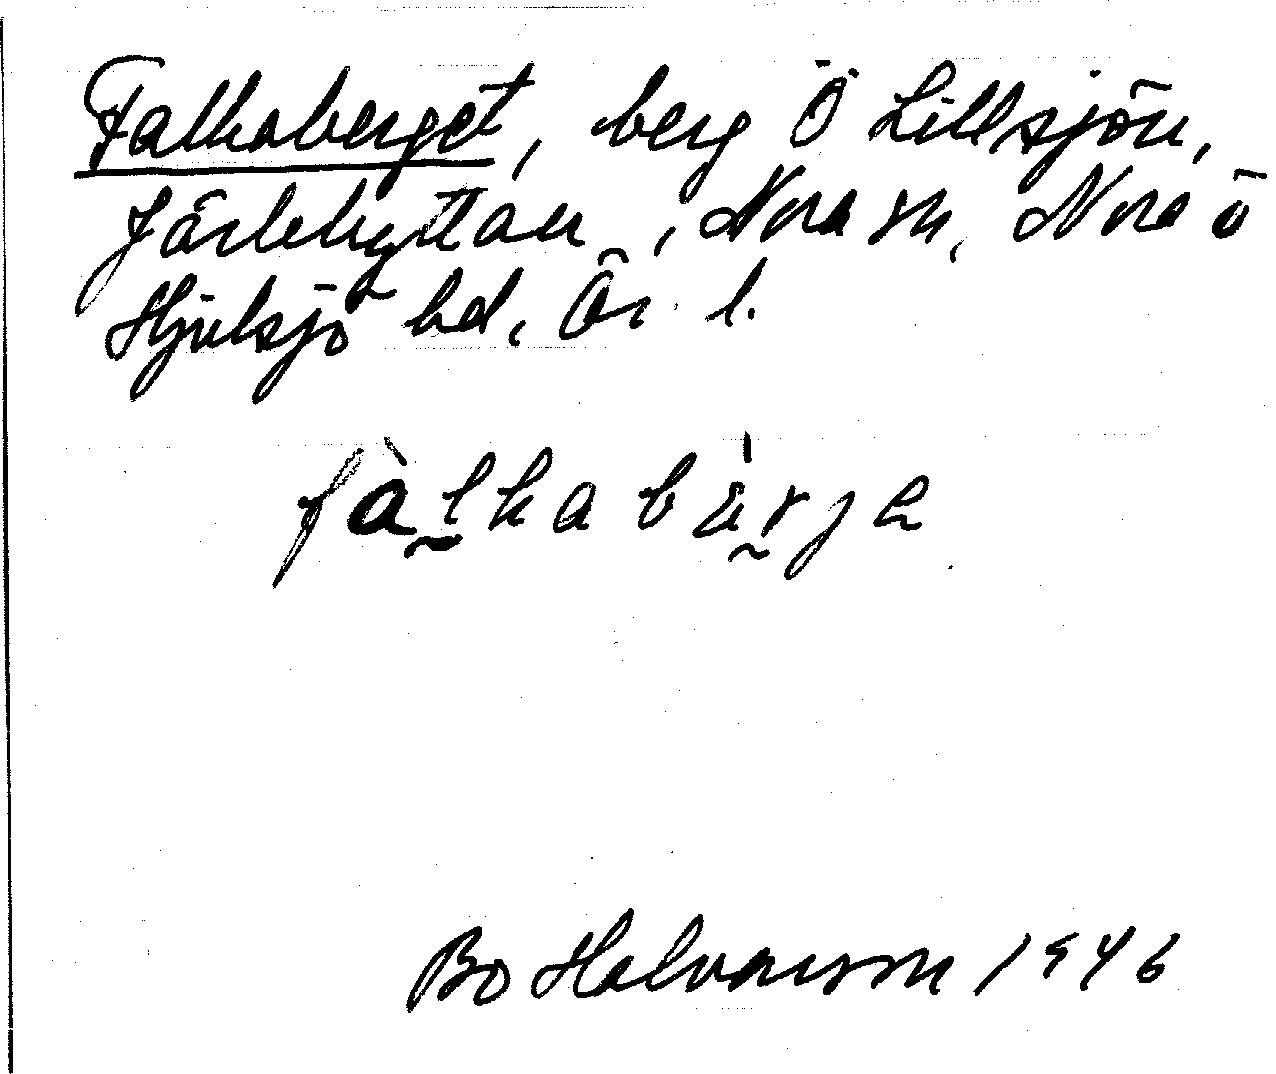 Falkaberget, berg Ö Lillsjön,
Järlehyttan, Nora sn, Nora o
Hjulsjö hd, Ör. l.
fàlkabärja
Bo Halvarsson 1946